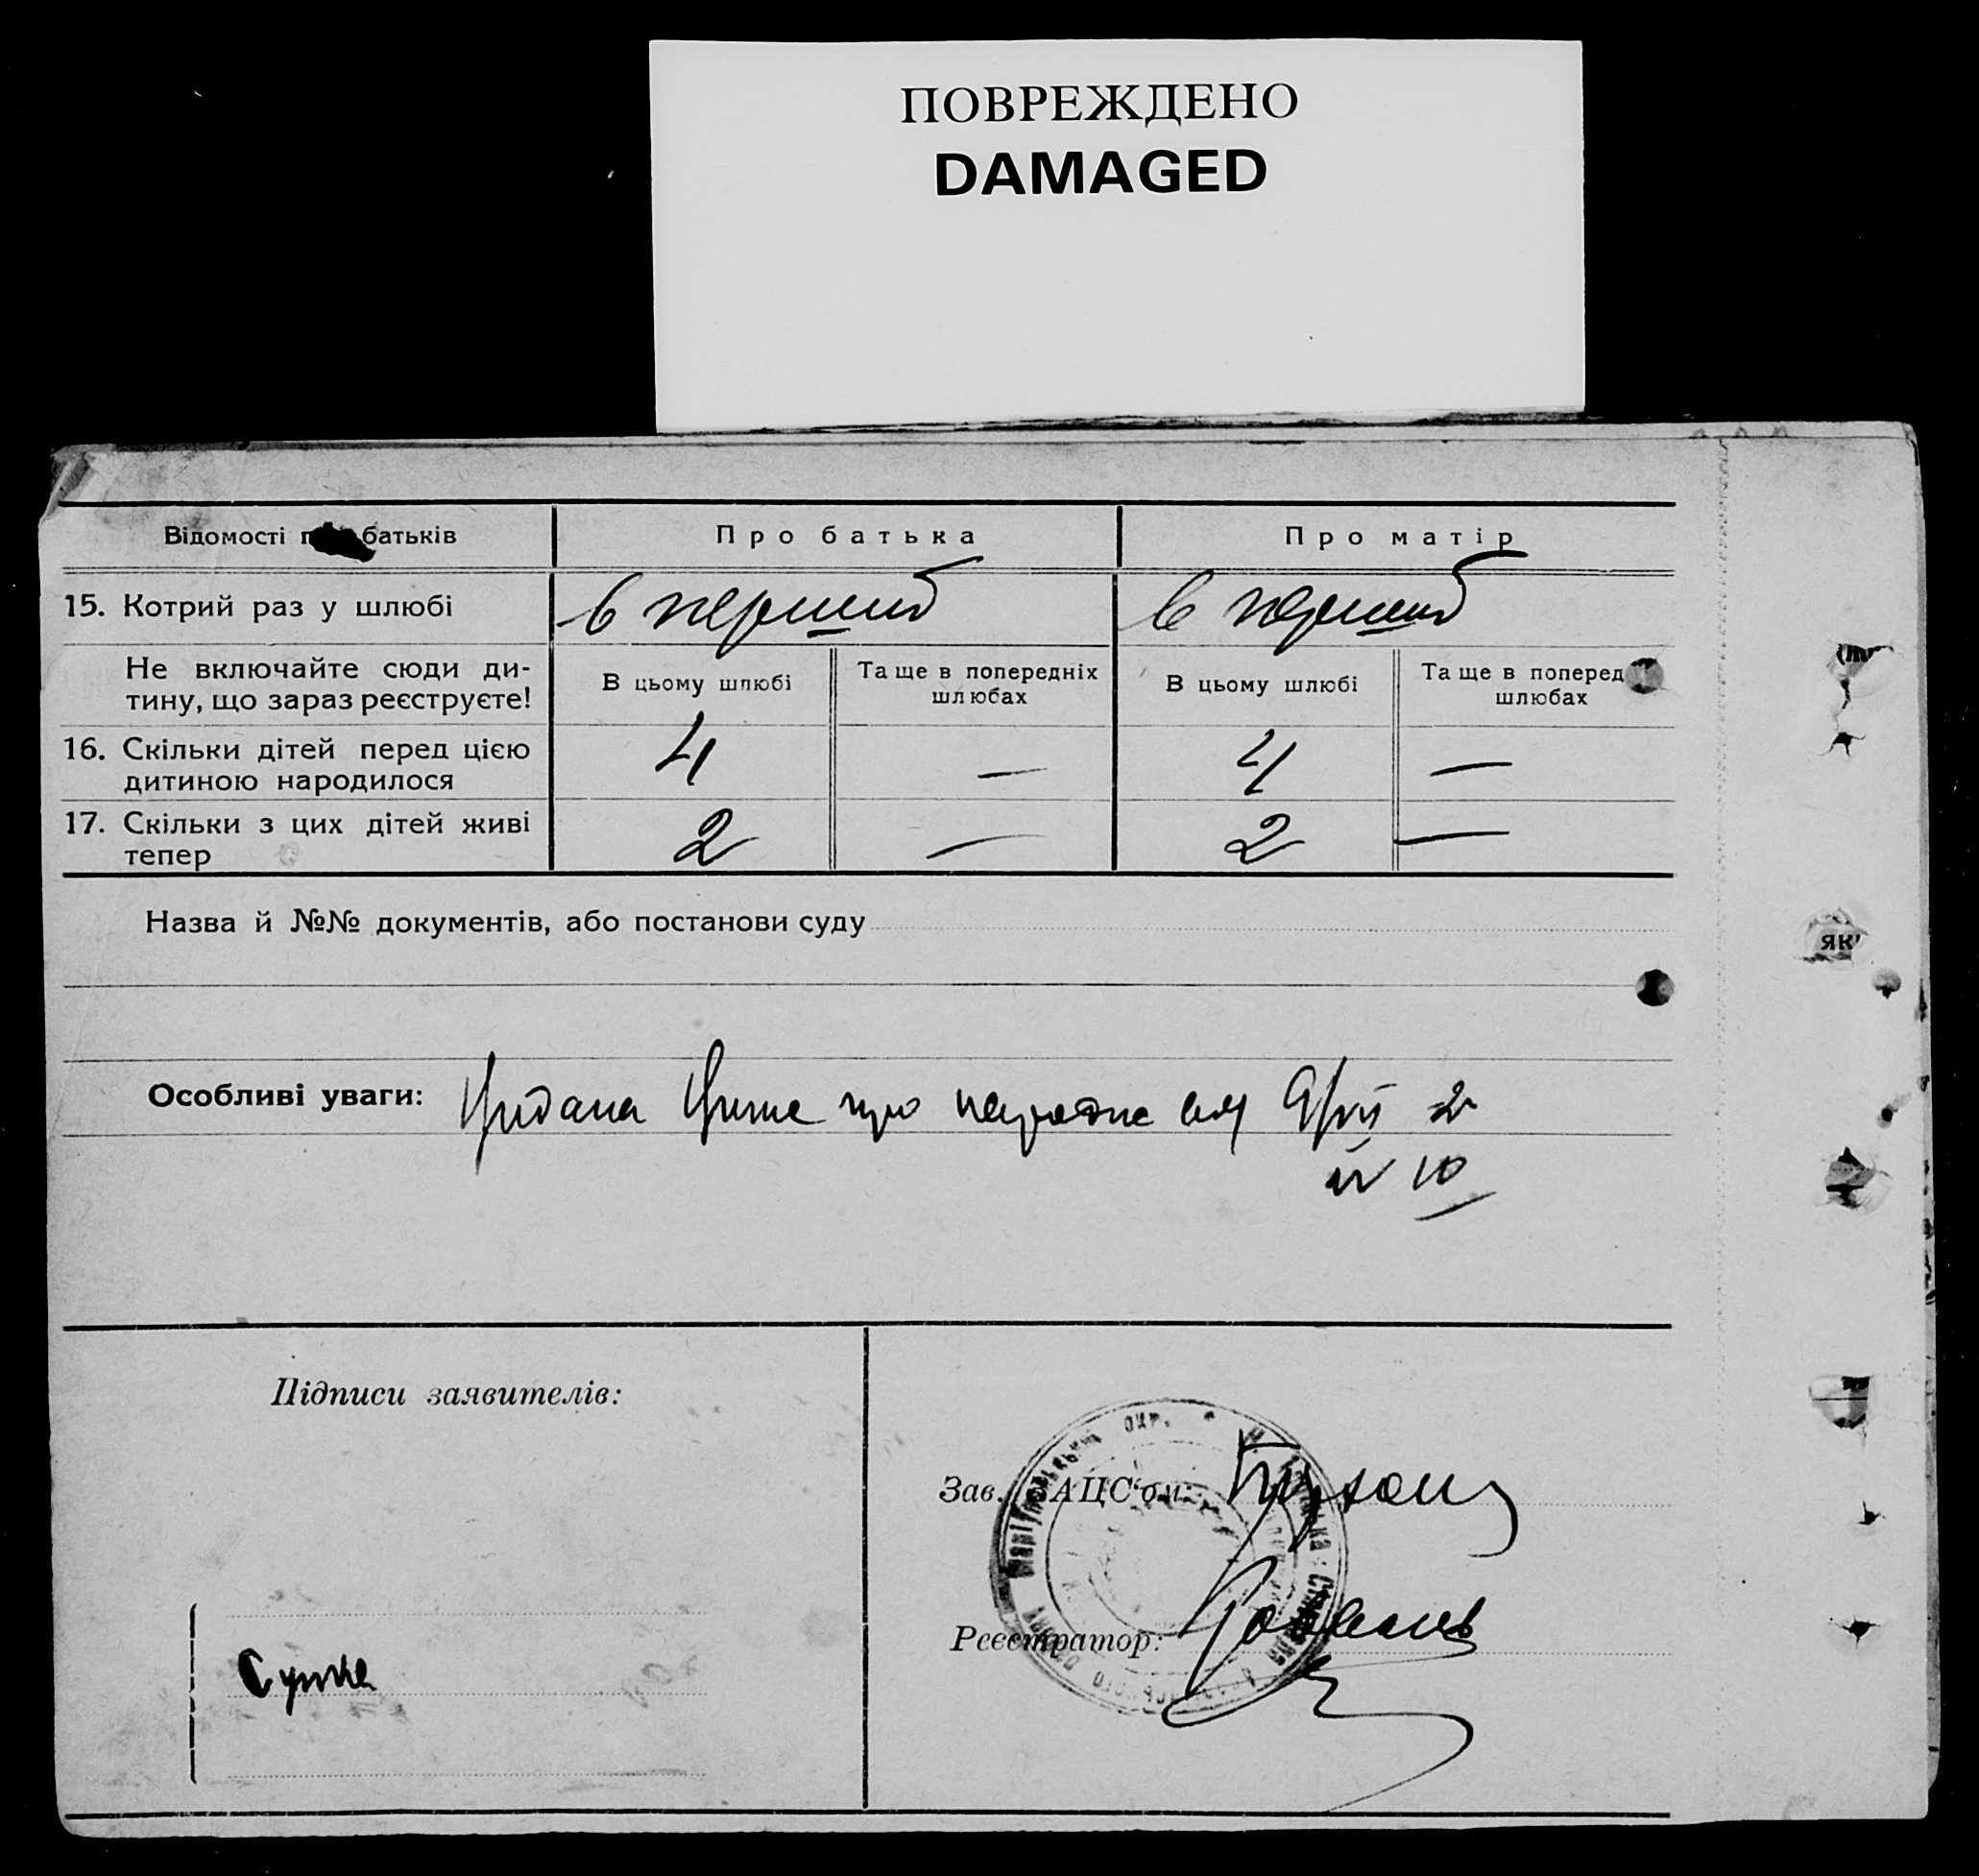 ПОВРЕЖДЕНО
DAMAGED
Відомості батьків
Про батька
Про матір
15. Котрий раз у шлюбі
в перший
в перший
Не включайте сюди ди-
тину, що зараз реєструєте!
В цьому шлюбі
Та ще в попередніх
шлюбах
В цьому шлюбі
Та ще в поперед
шлюбах
16. Скільки дітей перед цією
дитиною народилося
4
—
4
—
17. Скільки з цих дітей живі
тепер
2
—
2
—
Назва й №№ документів, або постанови суду
як
Особливі уваги:
про 2
№ 10
Підписи заявителів:
окр.
Зав. АЦС'ом:
Реєстратор: